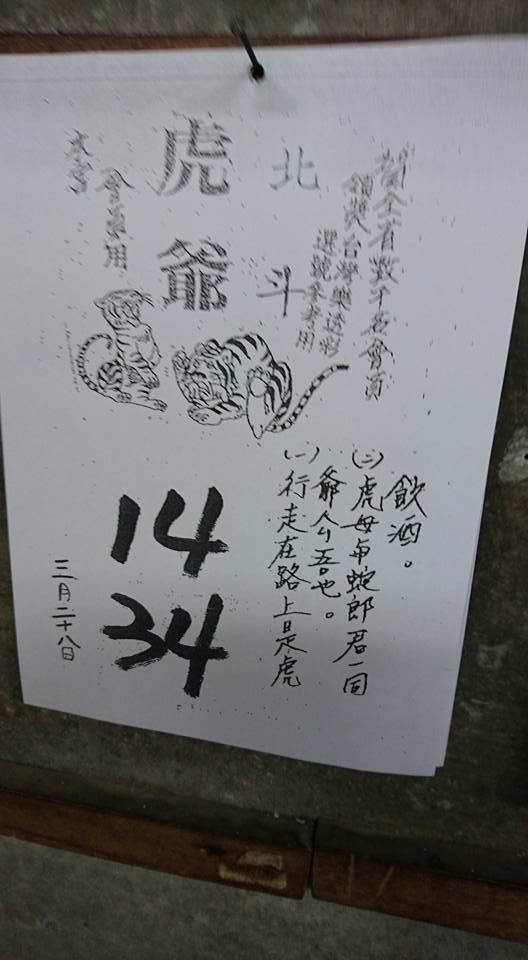 幫全省數千名會員
領獎台灣樂透彩
選號參考用
北斗
虎爺
會員用
(一)行走在路上是虎
爺公吾也。
(二)虎母與蜿郎君一同
飲酒。
14
34
三月二十八日